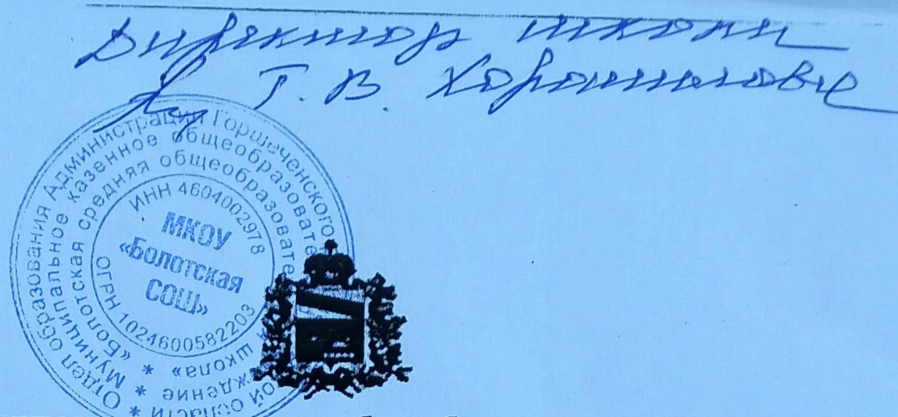 Директор школы
Г. В. Хорошилова
Отдел образования Администрации Горшеченского
ой области
Муниципальное казенное общеобразовате
ждение
«Болотская средняя общеобразовате
школа»
ИНН 4604002978
ОГРН 1024600582203
МКОУ
«Болотская
СОШ»